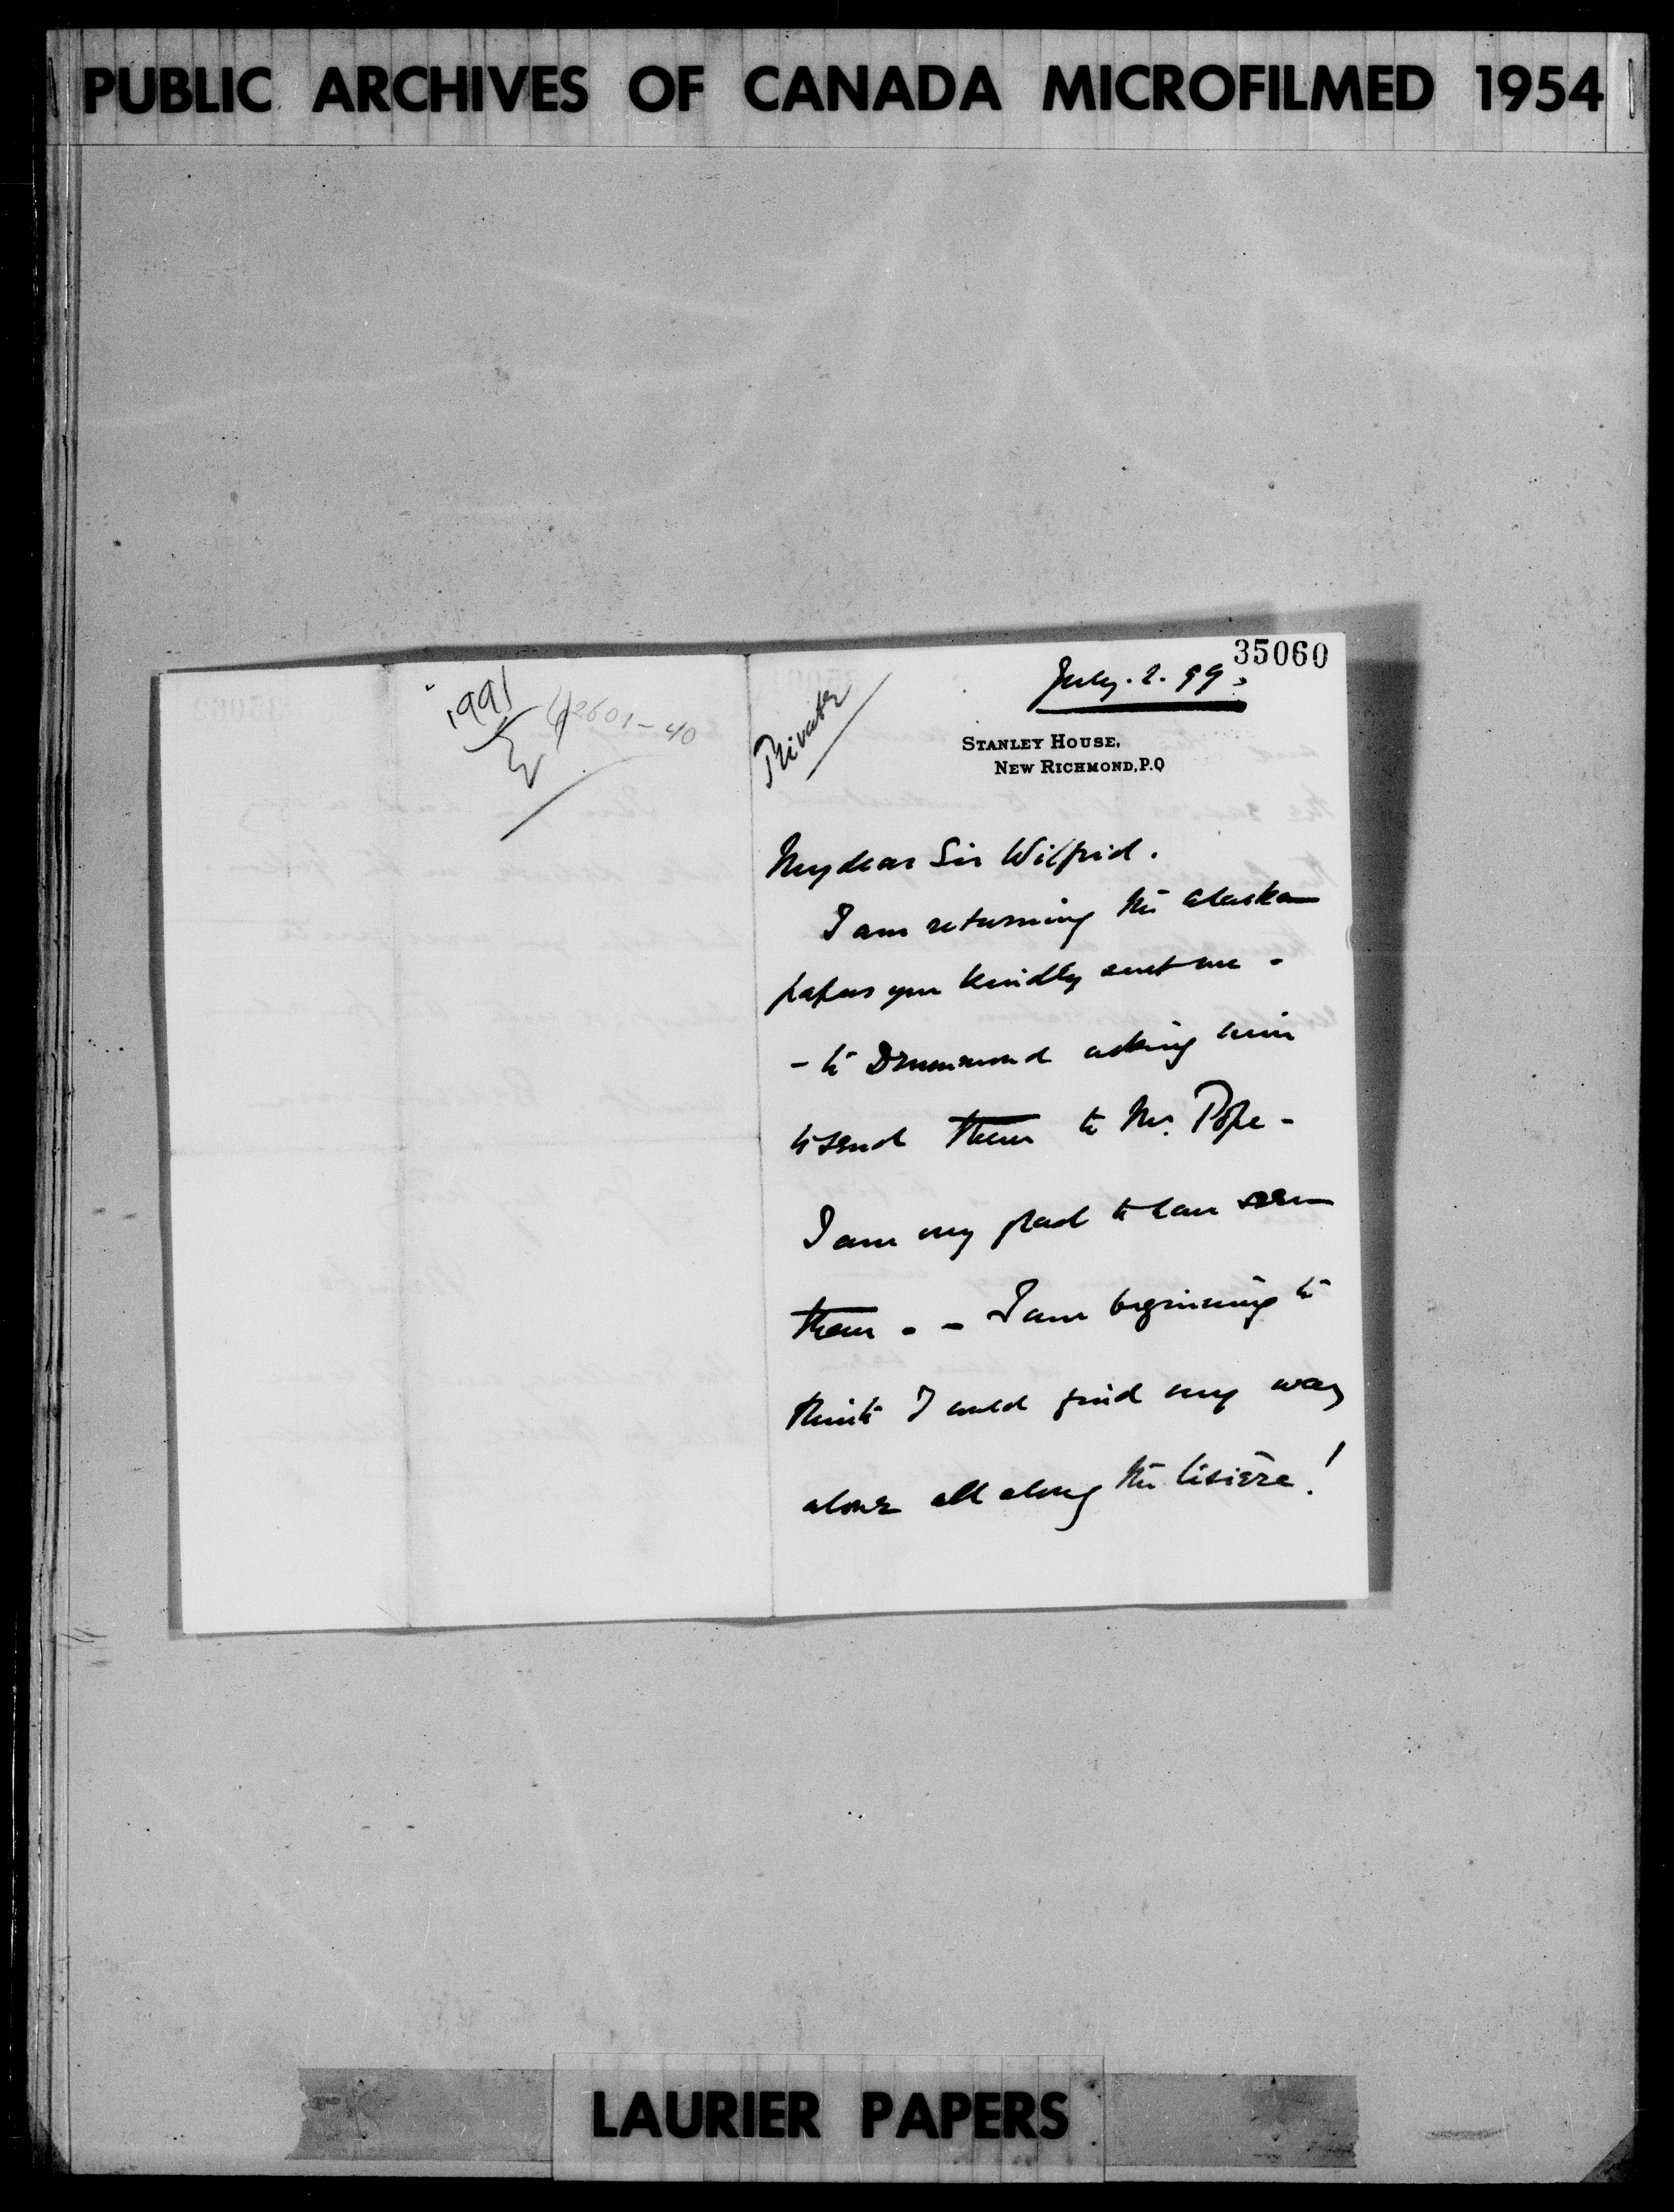 PUBLIC ARCHIVES OF CANADA MICROFILMED 1954
35060
July. 2. 99.
1991
42601-40
Private
STANLEY HOUSE,
NEW RICHMOND, P.Q
My dear Sir Wilfrid.
I am returning the Alaskan
papers you kindly sent me -
- to Drummond asking him
to send them to Mr. Pope -
I am very glad to have seen
them - - I am beginning to
think I could find my way
alone all along the lisière!
LAURIER PAPERS